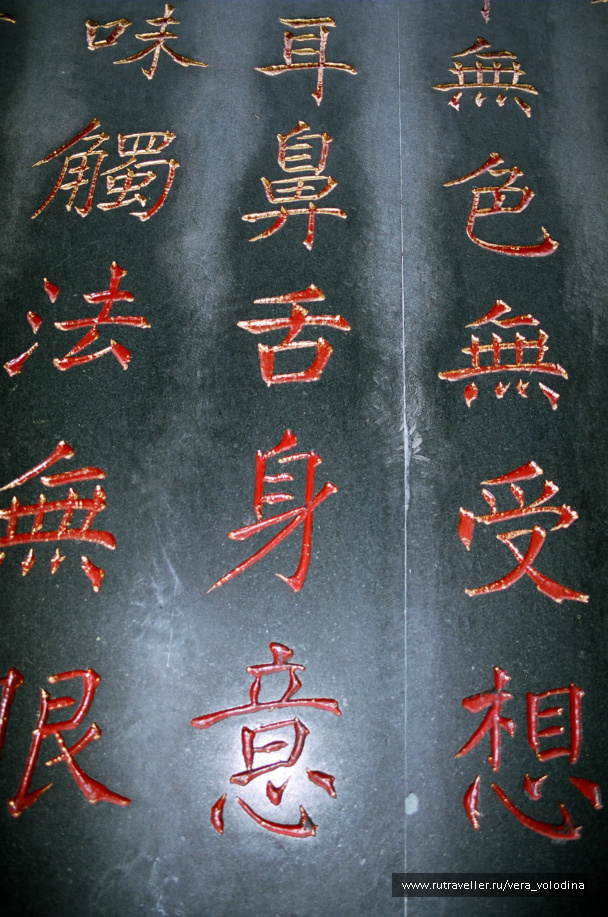 無色無受想
耳鼻舌身意
味觸法無眼
www.rutraveller.ru/vera_volodina